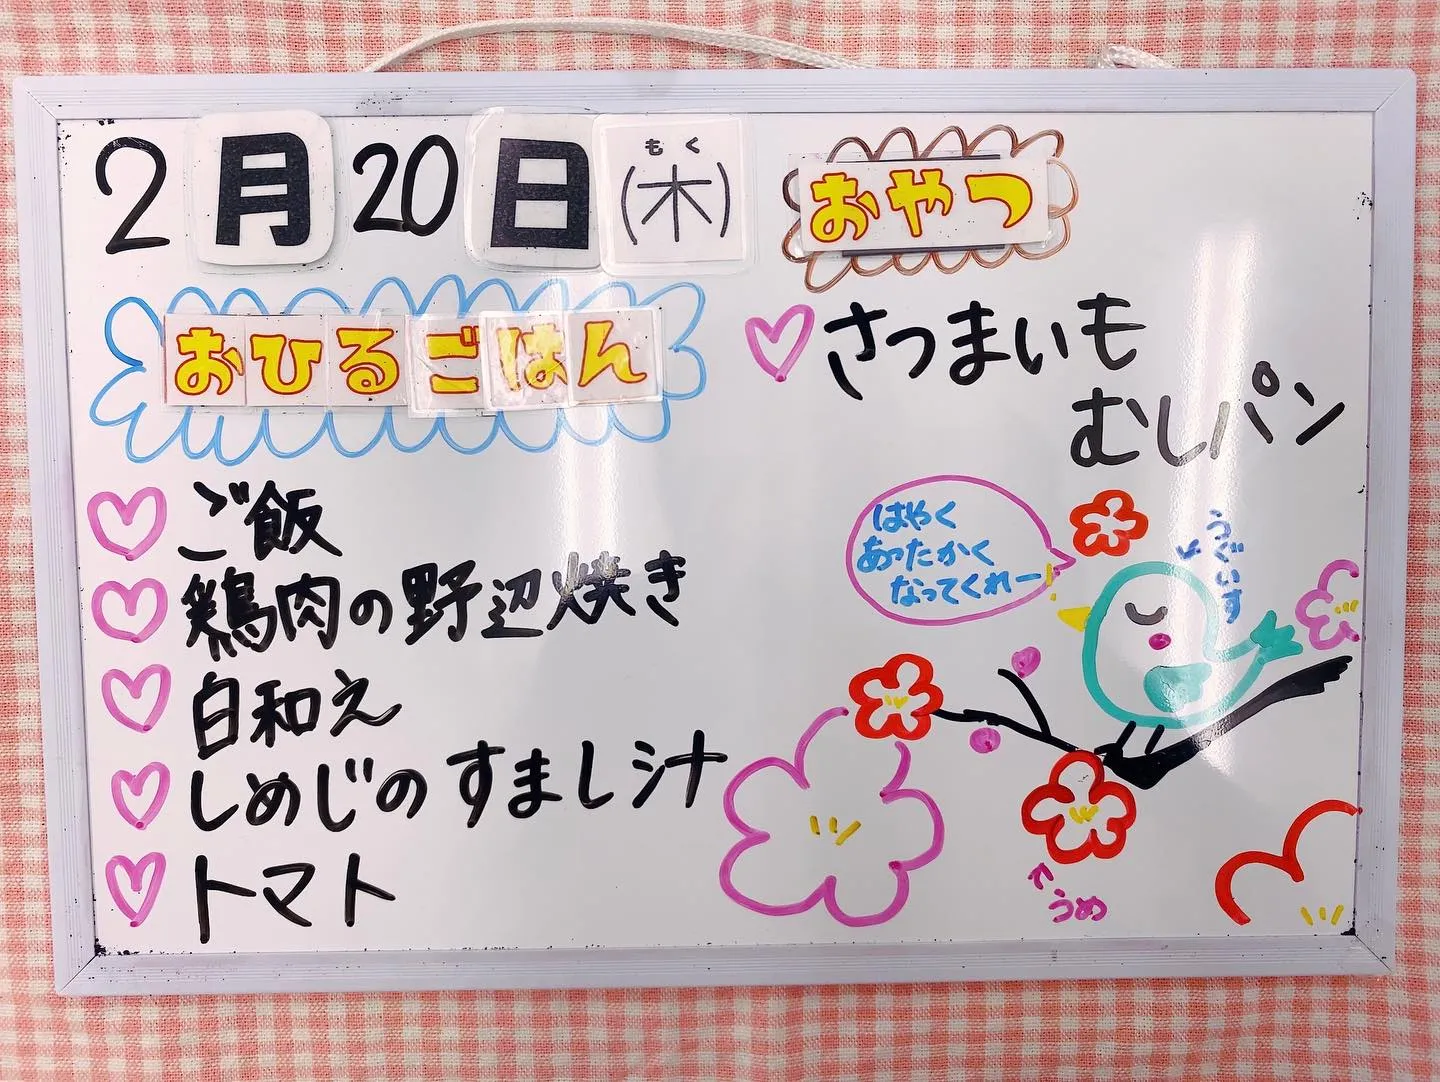 2月20日(木)
もく
おひるごはん
ご飯
鶏肉の野辺焼き
白和え
しめじのすまし汁
トマト
おやつ
さつまいも
むしパン
はやく
あったかく
なってくれー!
うぐいす
うめ